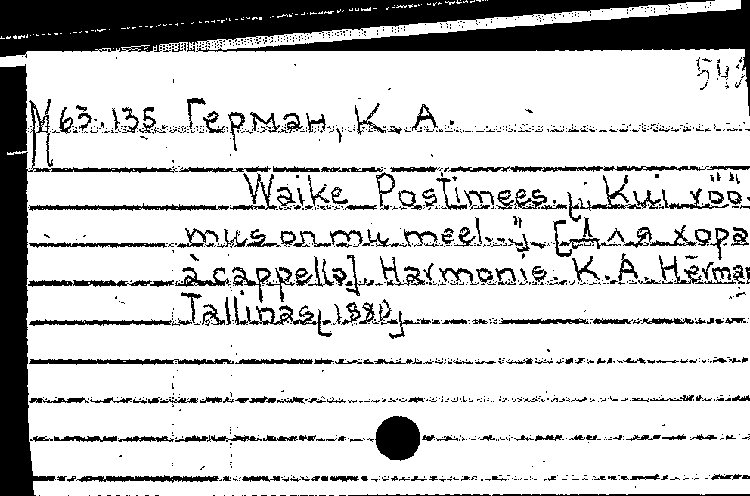 542
М 63.135. Герман, К. А.
Waike Postimees. [„Kui rõõ-
mus on mu meel..."]. [Для хора
à cappella]. Harmonis. K. A. Hērman
Tallinas [1880]